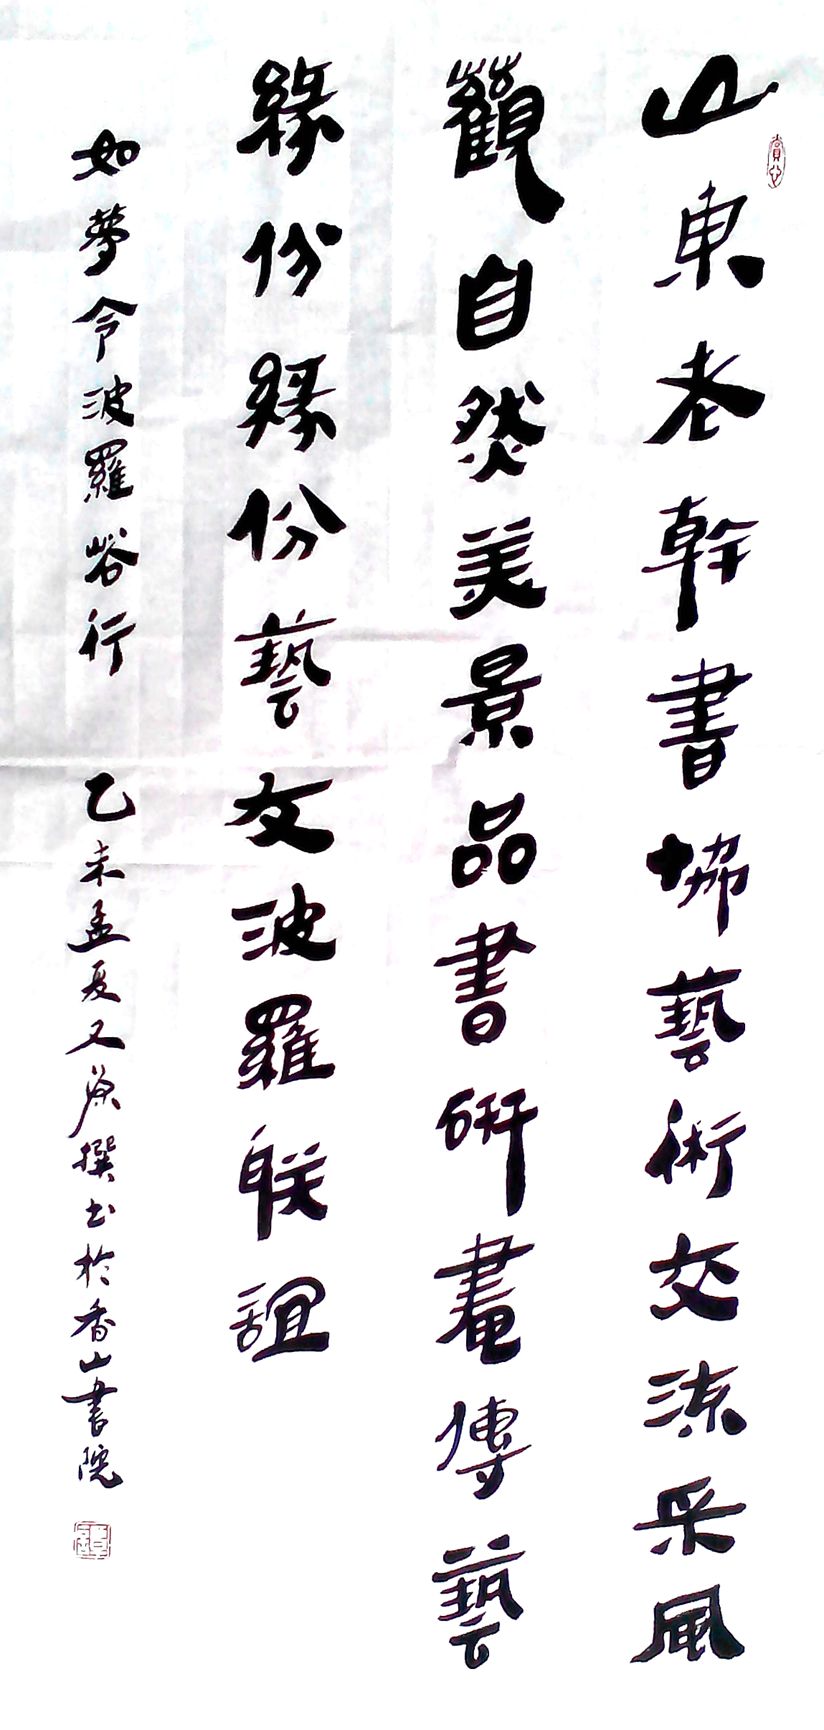 山東老幹書協藝術交流采風
觀自然美景品書研畫傳藝
緣份緣份藝友波羅联誼
如夢令波羅峪行 乙未孟夏又漁撰书於香山書院